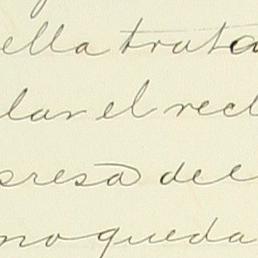 ella trata
lar el recl
presa del
no queda